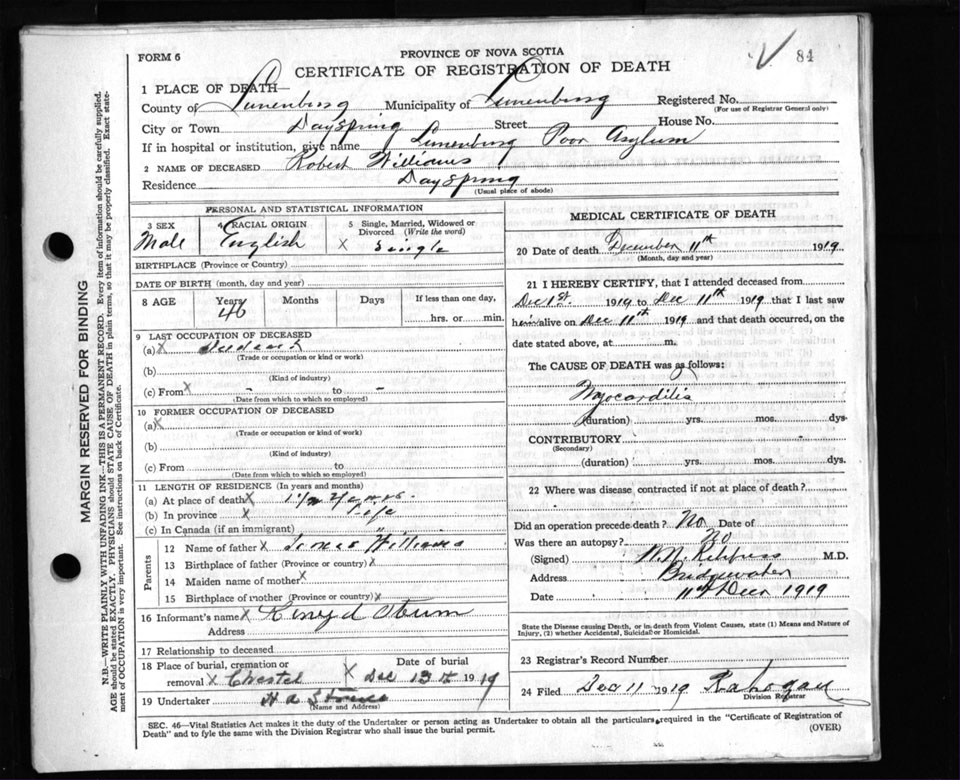 FORM 6
PROVINCE OF NOVA SCOTIA
84
CERTIFICATE OF REGISTRATION OF DEATH
1 PLACE OF DEATH—
County of Lunenburg Municipality of Lunenburg Registered No.
(For use of Registrar General only)
City or Town Dayspring Street House No.
If in hospital or institution, give name Lunenburg Poor Asylum
2 NAME OF DECEASED Robert Williams
Residence Dayspring
(Usual place of abode)
PERSONAL AND STATISTICAL INFORMATION
3 SEX Male
4 RACIAL ORIGIN English
5 Single, Married, Widowed or Divorced (Write the word)
X Single
BIRTHPLACE (Province or Country)
DATE OF BIRTH (month, day and year)
8 AGE Years 46 Months Days If less than one day,
hrs. or min.
9 LAST OCCUPATION OF DECEASED
(a) X
(Trade or occupation or kind or work)
(b)
(Kind of industry)
(c) From X - to -
(Date from which to which so employed)
10 FORMER OCCUPATION OF DECEASED
(a) X
(Trade or occupation or kind of work)
(b)
(Kind of industry)
(c) From to
(Date from which to which so employed)
11 LENGTH OF RESIDENCE (In years and months)
(a) At place of death X 1½ years.
(b) In province X Life
(c) In Canada (if an immigrant)
Parents
12 Name of father X Williams
13 Birthplace of father (Province or country) X
14 Maiden name of mother X
15 Birthplace of mother (Province or country) X
16 Informant's name X
Address
17 Relationship to deceased
18 Place of burial, cremation or removal X Chester
X Date of burial Dec 13th 1919
19 Undertaker H A
(Name and Address)
MEDICAL CERTIFICATE OF DEATH
20 Date of death December 11th 1919
(Month, day and year)
21 I HEREBY CERTIFY, that I attended deceased from
Dec 1st. 1919 to Dec 11th 1919 that I last saw
him alive on Dec 11th 1919 and that death occurred, on the
date stated above, at m.
The CAUSE OF DEATH was as follows:
Myocarditis
(duration) yrs. mos. dys.
CONTRIBUTORY
(Secondary)
(duration) yrs. mos. dys.
22 Where was disease contracted if not at place of death?
Did an operation precede death? No Date of
Was there an autopsy? No
(Signed) M.D.
Address Bridgewater
Date 11th Decr 1919
State the Disease causing Death, or in death from Violent Causes, state (1) Means and Nature of
Injury, (2) whether Accidental, Suicidal or Homicidal.
23 Registrar's Record Number
24 Filed Dec 11 1919
Division Registrar
SEC. 46—Vital Statistics Act makes it the duty of the Undertaker or person acting as Undertaker to obtain all the particulars required in the "Certificate of Registration of
Death" and to fyle the same with the Division Registrar who shall issue the burial permit.
(OVER)
MARGIN RESERVED FOR BINDING
N.B.—WRITE PLAINLY WITH UNFADING INK—THIS IS A PERMANENT RECORD. Every item of information should be carefully supplied.
AGE should be stated EXACTLY. PHYSICIANS should STATE CAUSE OF DEATH in plain terms, so that it may be properly classified. Exact statement
of OCCUPATION is very important. See instructions on back of Certificate.